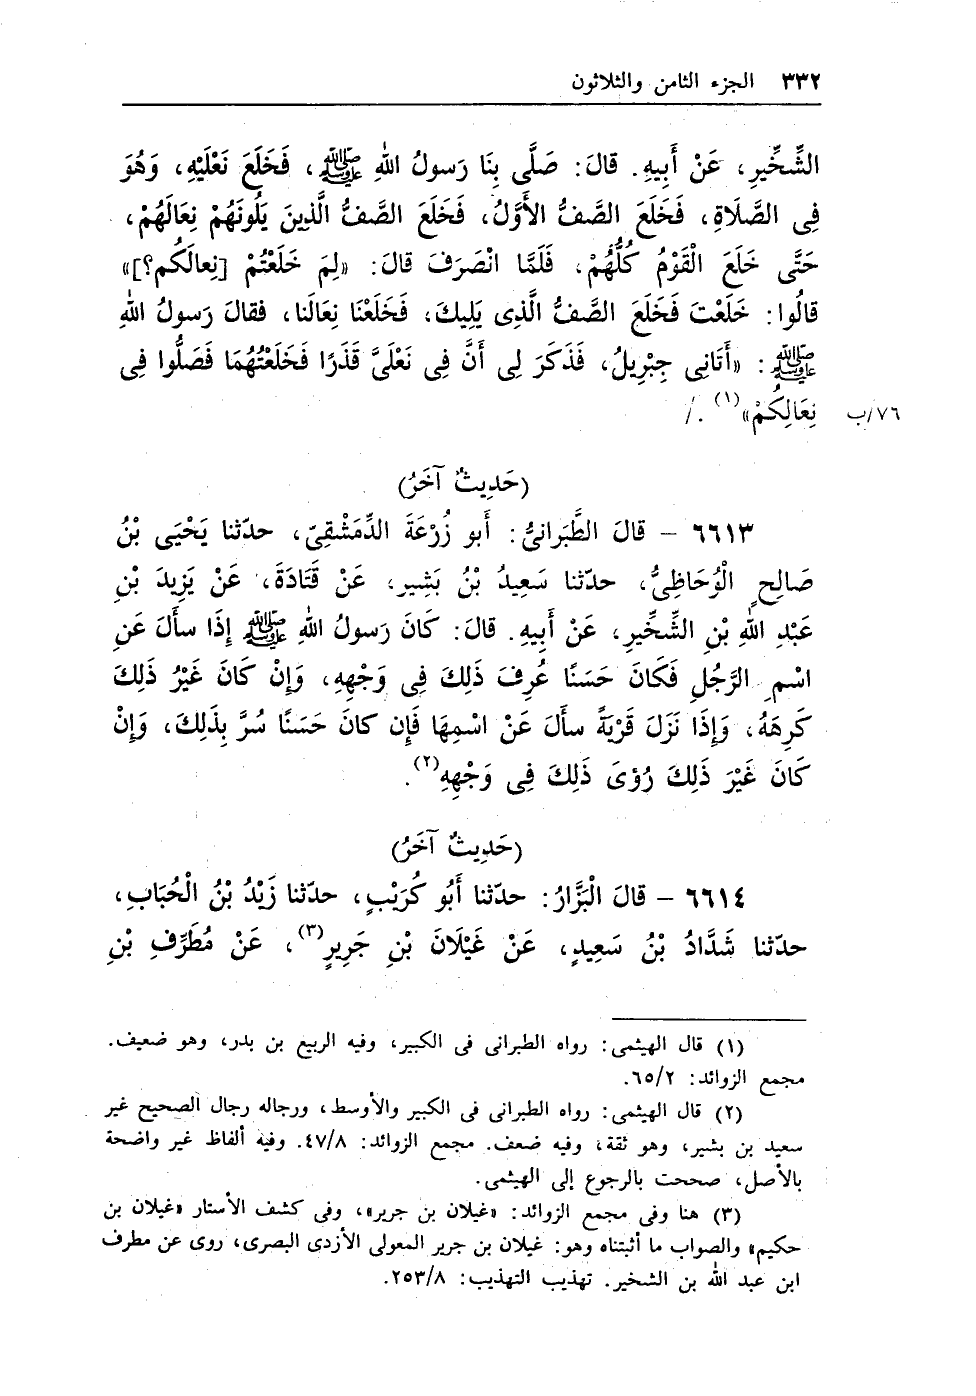 ٣٣٢ الجزء الثامن والثلاثون
الشِّخِّيرِ، عَنْ أَبِيهِ. قالَ: صَلَّى بِنَا رَسولُ اللهِ ﷺ، فَخَلَعَ نَعْلَيْهِ، وَهُوَ
فِى الصَّلَاةِ، فَخَلَعَ الصَّفُّ الأَوَّلُ، فَخَلَعَ الصَّفُّ الَّذِينَ يَلُونَهُمْ نِعَالَهُمْ،
حَتَّى خَلَعَ الْقَوْمُ كُلُّهُمْ، فَلَمَّا انْصَرَفَ قالَ: «لِمَ خَلَعْتُمْ [نِعالَكُم؟]»
قالُوا: خَلَعْتَ فَخَلَعَ الصَّفُّ الَّذِى يَلِيكَ، فَخَلَعْنَا نِعَالَنا، فقالَ رَسولُ اللهِ
ﷺ: «أَتَانِى جِبْرِيلُ، فَذَكَرَ لِى أَنَّ فِى نَعْلَىَّ قَذَرًا فَخَلَعْتُهُمَا فَصَلُّوا فِى
نِعَالِكُمْ»(١). / ٧٦/ب
(حَدِيثٌ آخَرُ)
٦٦١٣ – قالَ الطَّبَرانىُّ: أَبو زُرْعَةَ الدِّمَشْقِىّ، حدّثنا يَحْيَى بْنُ
صَالِحٍ الْوُحَاظِىُّ، حدّثنا سَعِيدُ بْنُ بَشِير، عَنْ قَتَادَةَ، عَنْ يَزِيدَ بْنِ
عَبْدِ اللهِ بْنِ الشِّخِّيرِ، عَنْ أَبِيهِ. قالَ: كَانَ رَسولُ اللهِ ﷺ إِذَا سأَلَ عَنِ
اسْمِ الرَّجُلِ فَكَانَ حَسَنًا عُرِفَ ذَلِكَ فِى وَجْهِهِ، وَإِنْ كَانَ غَيْرُ ذَلِكَ
كَرِهَهُ، وَإِذَا نَزَلَ قَرْيَةً سأَلَ عَنْ اسْمِهَا فَإِن كانَ حَسَنًا سُرَّ بِذَلِكَ، وَإِنْ
كَانَ غَيْرَ ذَلِكَ رُؤىَ ذَلِكَ فِى وَجْهِهِ(٢).
(حَدِيثٌ آخَرُ)
٦٦١٤ – قالَ الْبَزَّارُ: حدّثنا أَبُو كُرَيْبٍ، حدّثنا زَيْدُ بْنُ الْحُبَابِ،
حدّثنا شَدَّادُ بْنُ سَعِيدٍ، عَنْ غَيْلَانَ بْنِ جَرِيرٍ(٣)، عَنْ مُطَرِّفِ بْنِ
(١) قال الهيثمى: رواه الطبرانى فى الكبير، وفيه الربيع بن بدر، وهو ضعيف.
مجمع الزوائد: ٦٥/٢.
(٢) قال الهيثمى: رواه الطبرانى فى الكبير والأوسط، ورجاله رجال الصحيح غير
سعيد بن بشير، وهو ثقة، وفيه ضعف. مجمع الزوائد: ٤٧/٨. وفيه ألفاظ غير واضحة
بالأصل، صححت بالرجوع إلى الهيثمى.
(٣) هنا وفى مجمع الزوائد: «غيلان بن جرير»، وفى كشف الأستار «غيلان بن
حكيم» والصواب ما أثبتناه وهو: غيلان بن جرير المعولى الأزدى البصرى، روى عن مطرف
ابن عبد الله بن الشخير. تهذيب التهذيب: ٢٥٣/٨.